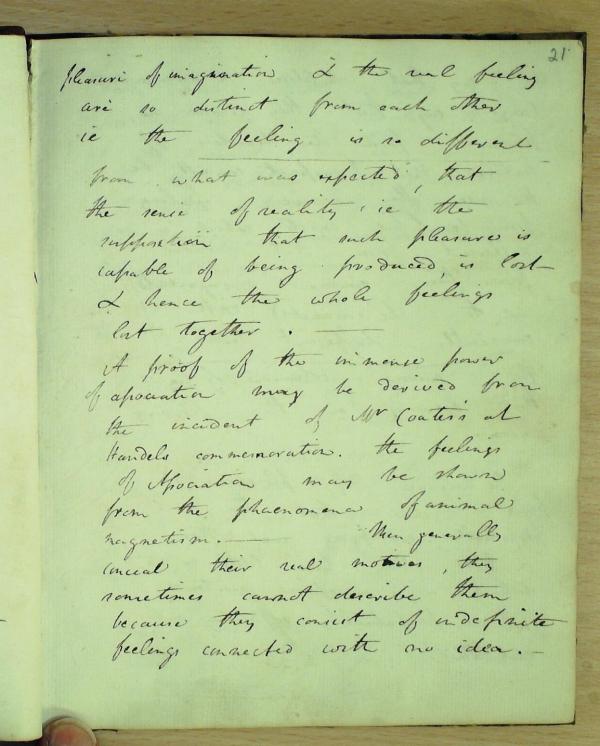 21
pleasure of imagination & the real feeling
are so distinct from each other
ie the feeling is so different
from what was expected, that
the sense of reality, ie the
supposition that such pleasure is
capable of being produced, is lost
& hence the whole feelings
lost together. —
A proof of the immense power
of association may be derived from
the incident of Mr Coates's at
Handels commemoration. The feelings
of Association may be shown
from the phaenomena of animal
magnetism. — Men generally
conceal their real motives, they
sometimes cannot describe them
because they consist of indefinite
feelings connected with no idea. —